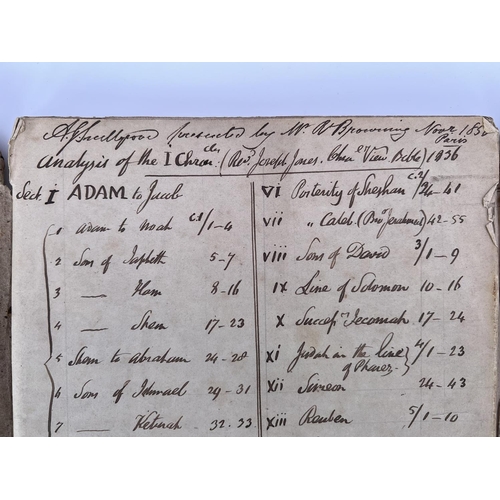 presented by Mr. R Browning Novr. 185
Paris
Analysis of the I Chronicles. (Revd. Joseph Jones. Chral View Bible) 1836
Sect. I ADAM to Jacob
1 Adam to Noah c.1/1-4
2 Sons of Japheth 5-7
3 — Ham 8-16
4 — Shem 17-23
5 Shem to Abraham 24-28
6 Sons of Ishmael 24-31
7 — Keturah 32.33
VI Posterity of Sheshan c.2/34-41
VII " Caleb. (Bror Jerahmeel) 42-55
VIII Sons of David 3/1-9
IX Line of Solomon 10-16
X Succesrs Jeconiah 17-24
XI Judah in the line of Pharez 4/1-23
XII Simeon 24-43
XIII Reuben 5/1-10